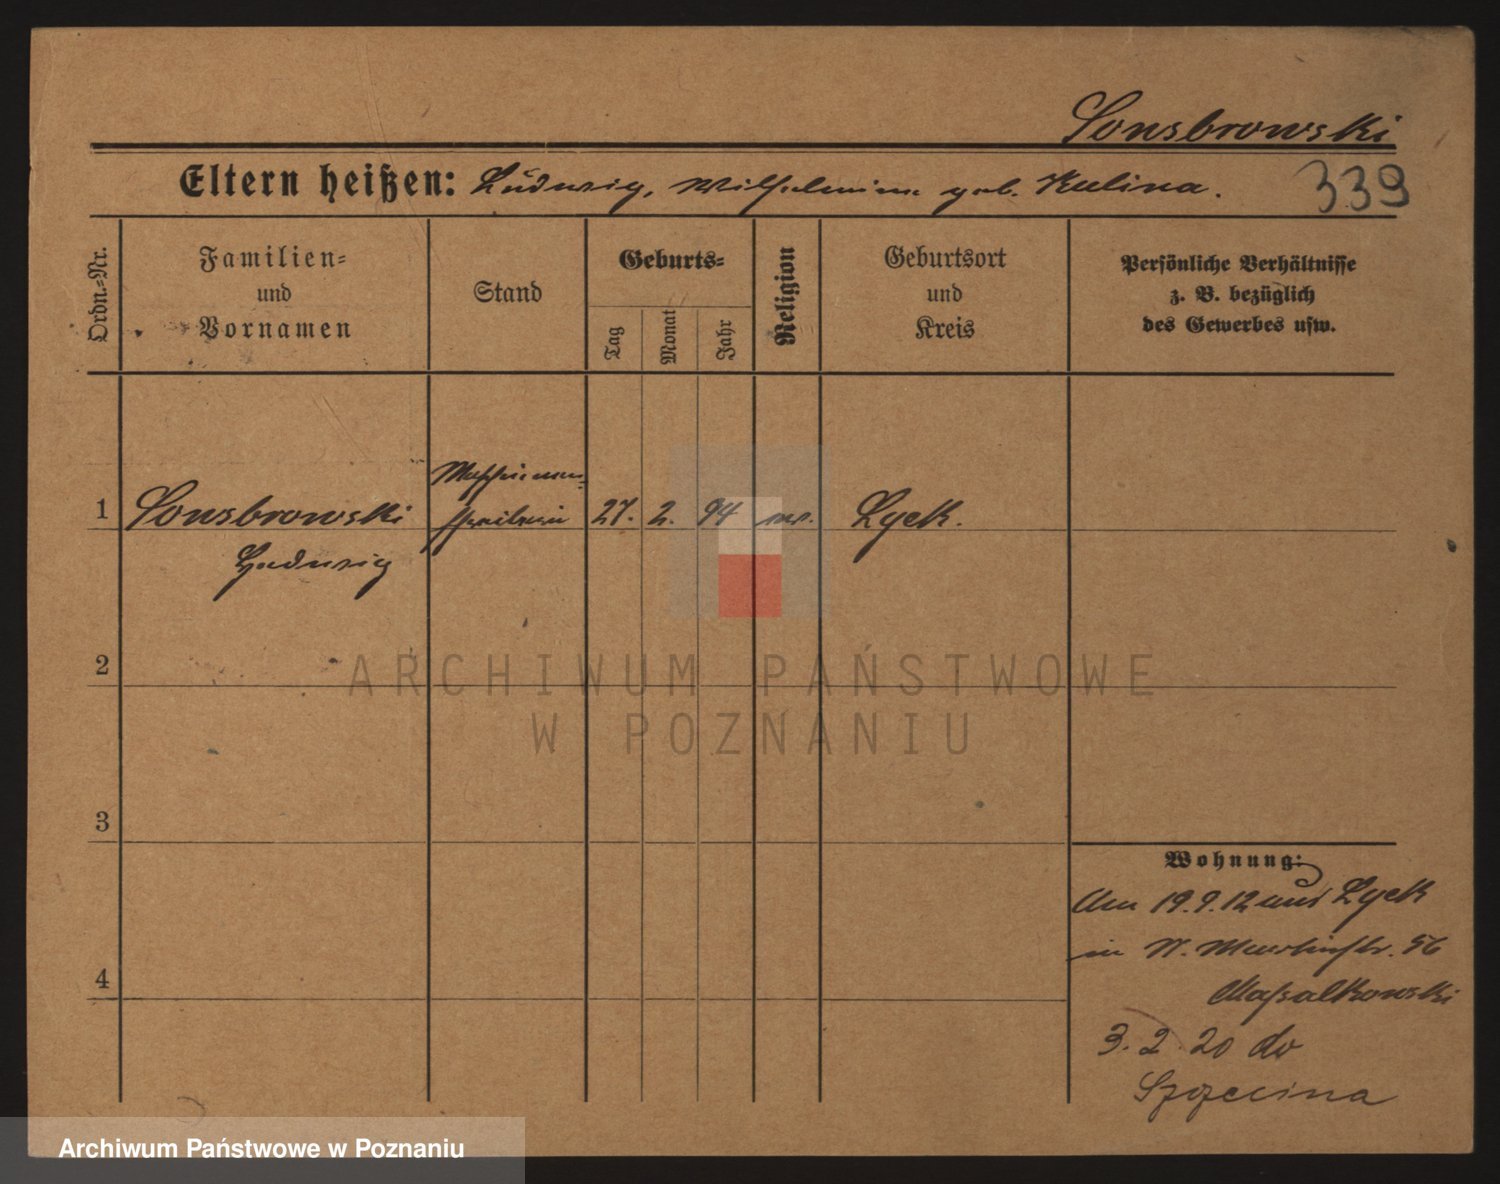 Sonsbrowski
Eltern heißen: Ludwig, Wilhelmine geb. Kulina.
339
Ordn.-Nr.
Familien-
und
Vornamen
Stand
Geburts-
Tag
Monat
Jahr
Religion
Geburtsort
und
Kreis
Persönliche Verhältnisse
z. B. bezüglich
des Gewerbes usw.
1
Sonsbrowski
Ludwig
27.
2.
94
ev.
Lyck.
2
3
4
Wohnung:
Am 19.9.12 aus Lyck
in W. 56
Maßalkowski
3.2.20 do
Szczecina
ARCHIWUM PAŃSTWOWE
W POZNANIU
Archiwum Państwowe w Poznaniu